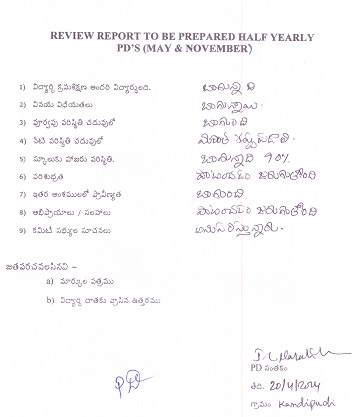 REVIEW REPORT TO BE PREPARED HALF YEARLY
PD'S (MAY & NOVEMBER)
1) విద్యార్థి క్రమశిక్షణ అందరి విద్యార్థులది. బాగున్నది
2) వినయ విధేయతలు బాగున్నాయి.
3) పూర్వపు పరిస్థితి చదువులో బాగుంది
4) నేటి పరిస్థితి చదువులో
5) స్కూలుకు హాజరు పరిస్థితి. బాగున్నాది 90%
6) పరిశుభ్రత పాటించడం జరుగుతోంది
7) ఇతర అంశములలో ప్రావీణ్యత బాగుంది
8) అభిప్రాయాలు / సలహాలు పాటించడం జరుగుతోంది
9) కమిటీ సభ్యుల సూచనలు అనుసరిస్తున్నారు.
జతపరచవలసినవి –
a) మార్కుల పత్రము
b) విద్యార్థి దాతకు వ్రాసిన ఉత్తరము
PD సంతకం
తేది. 20/4/2014
గ్రామం Kandipudi